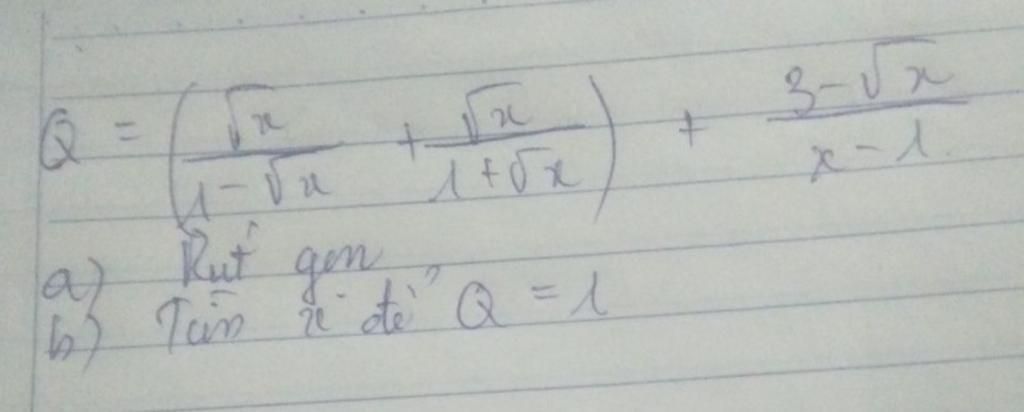 Q = (√x / (1 - √x) + √x / (1 + √x)) + (3 - √x) / (x - 1)
a) Rút gọn
b) Tìm x để Q = 1